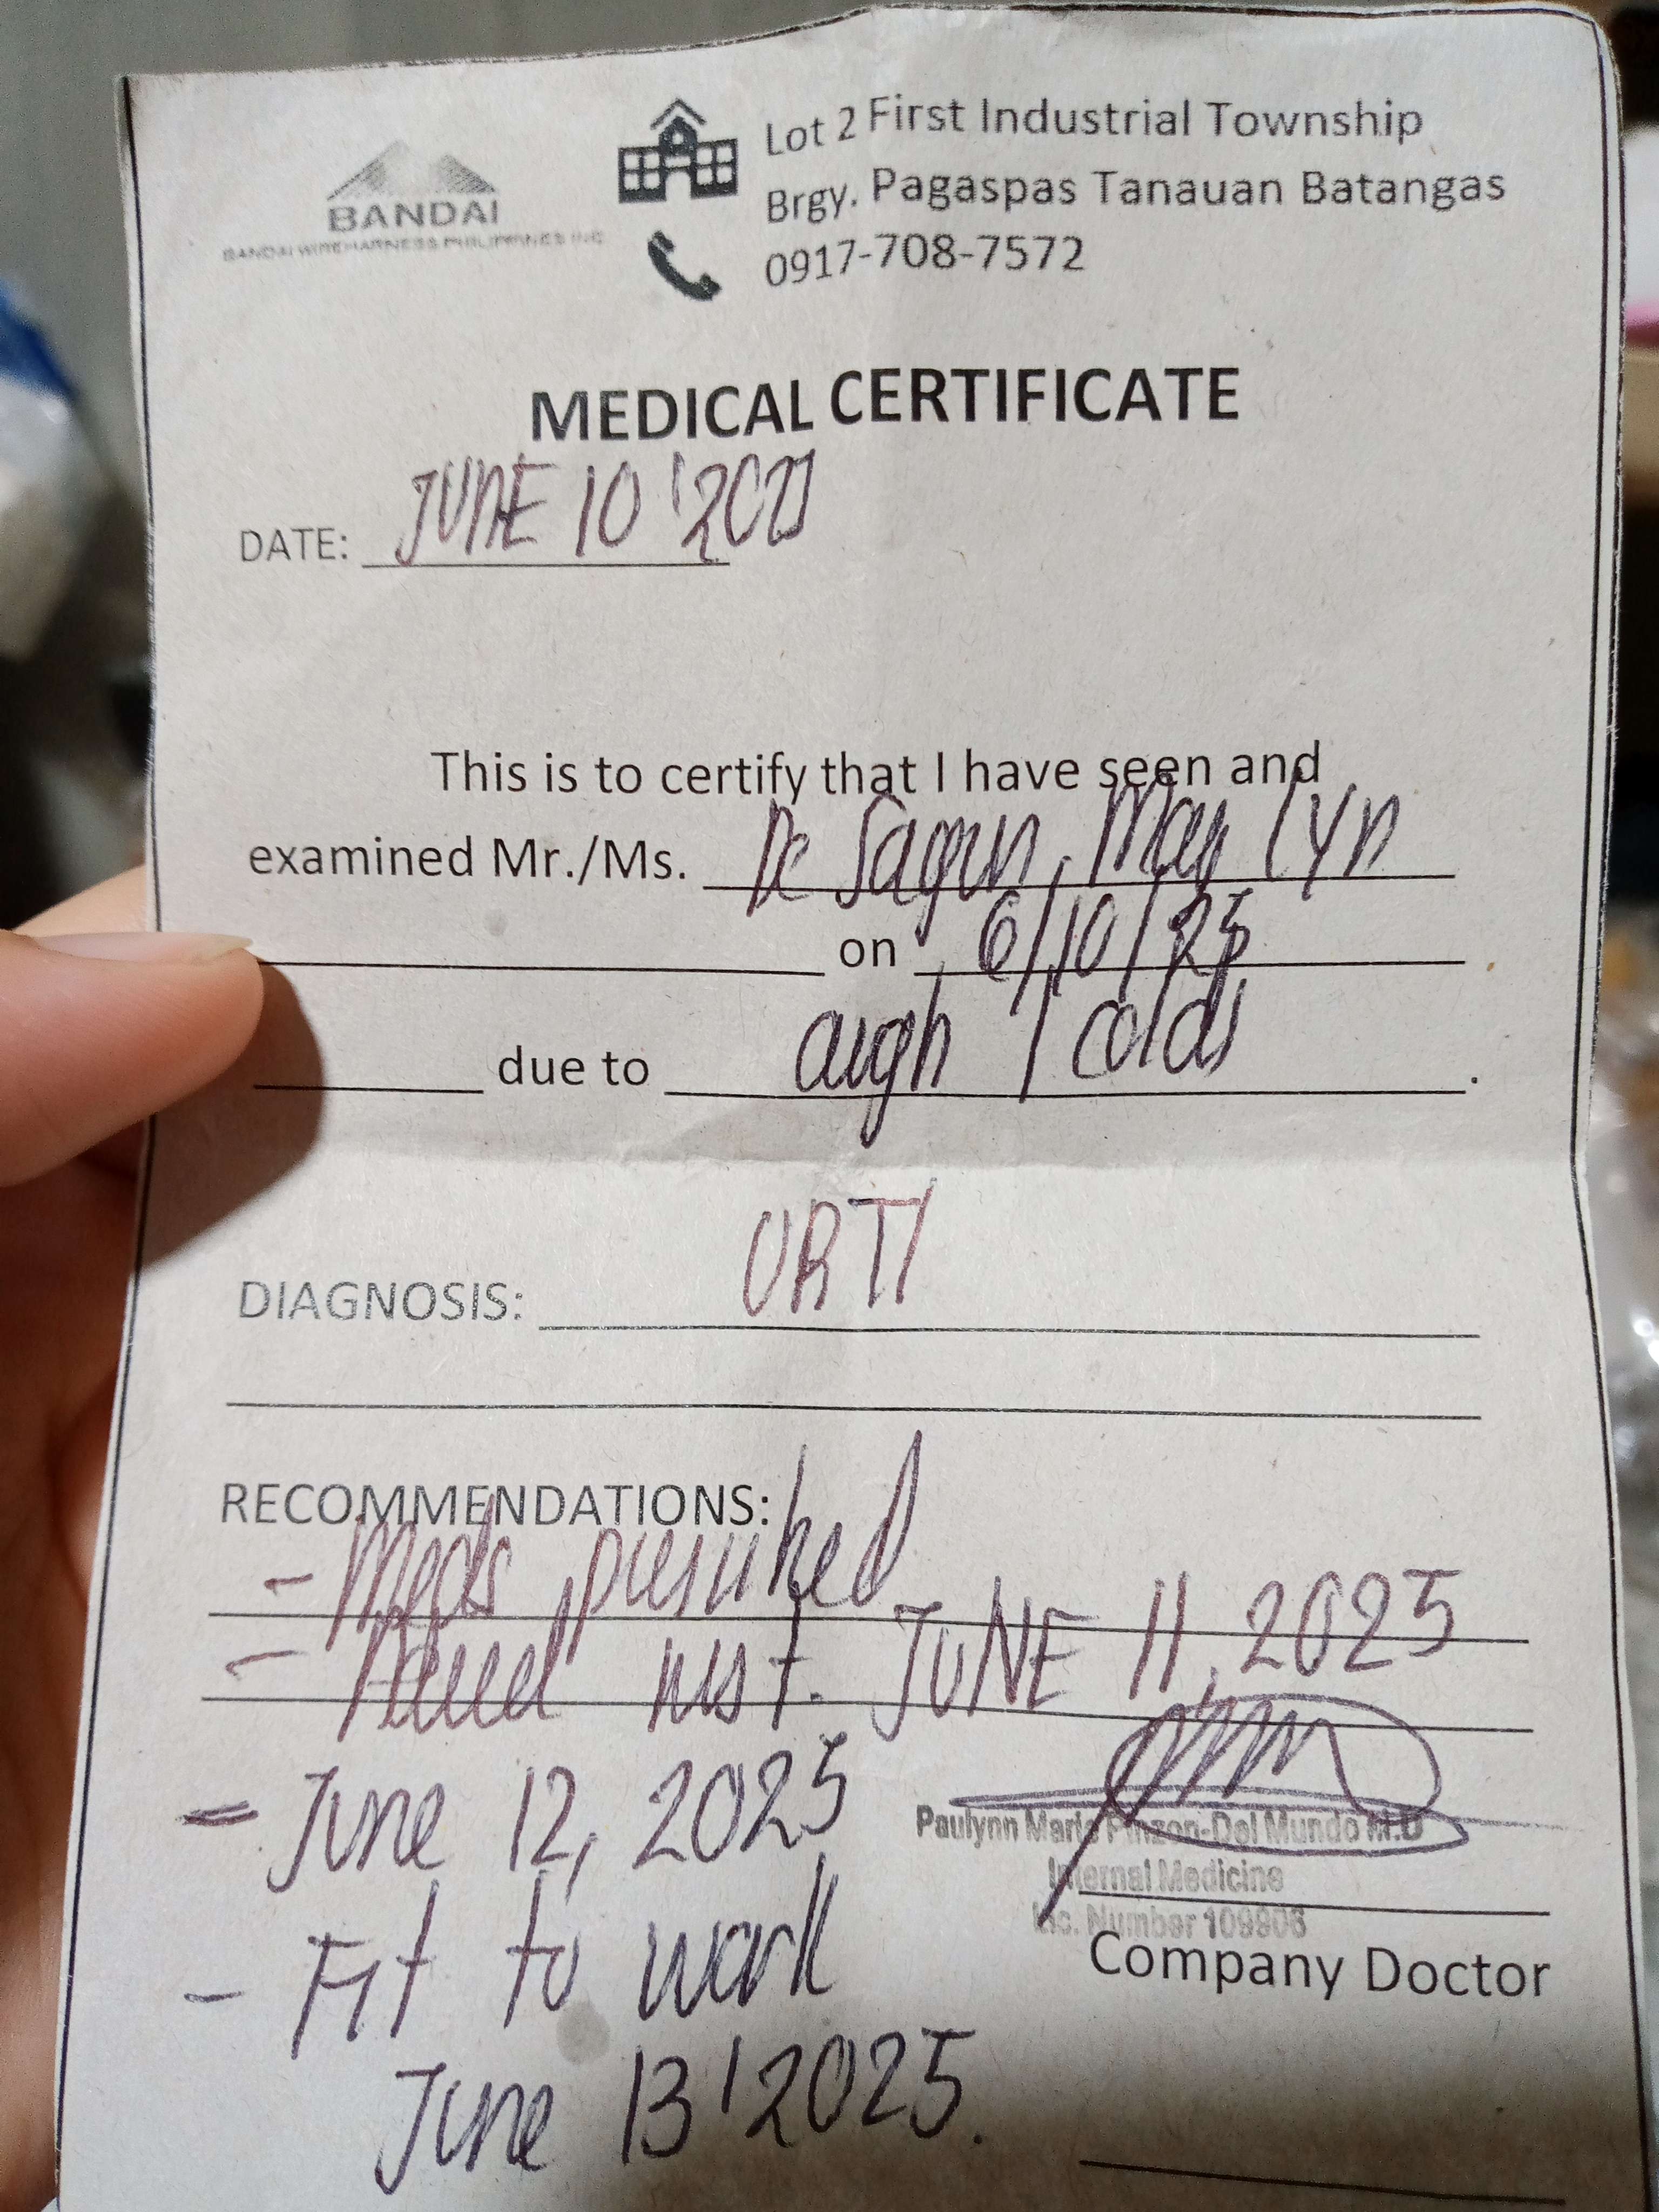 BANDAI
BANDAI WIREHARNESS PHILIPPINES INC
Lot 2 First Industrial Township
Brgy. Pagaspas Tanauan Batangas
0917-708-7572
MEDICAL CERTIFICATE
DATE: JUNE 10 '202
This is to certify that I have seen and
examined Mr./Ms. De Sagun, May Lyn
on 6/10/25
due to cough / colds.
DIAGNOSIS: URTI
RECOMMENDATIONS:
- Meds prescribed
- Advised rest. JUNE 11, 2025
- June 12, 2025
- Fit to work
June 13 ' 2025.
Paulynn Marie Pinzon-Del Mundo M.D
Internal Medicine
Lic. Number 109906
Company Doctor